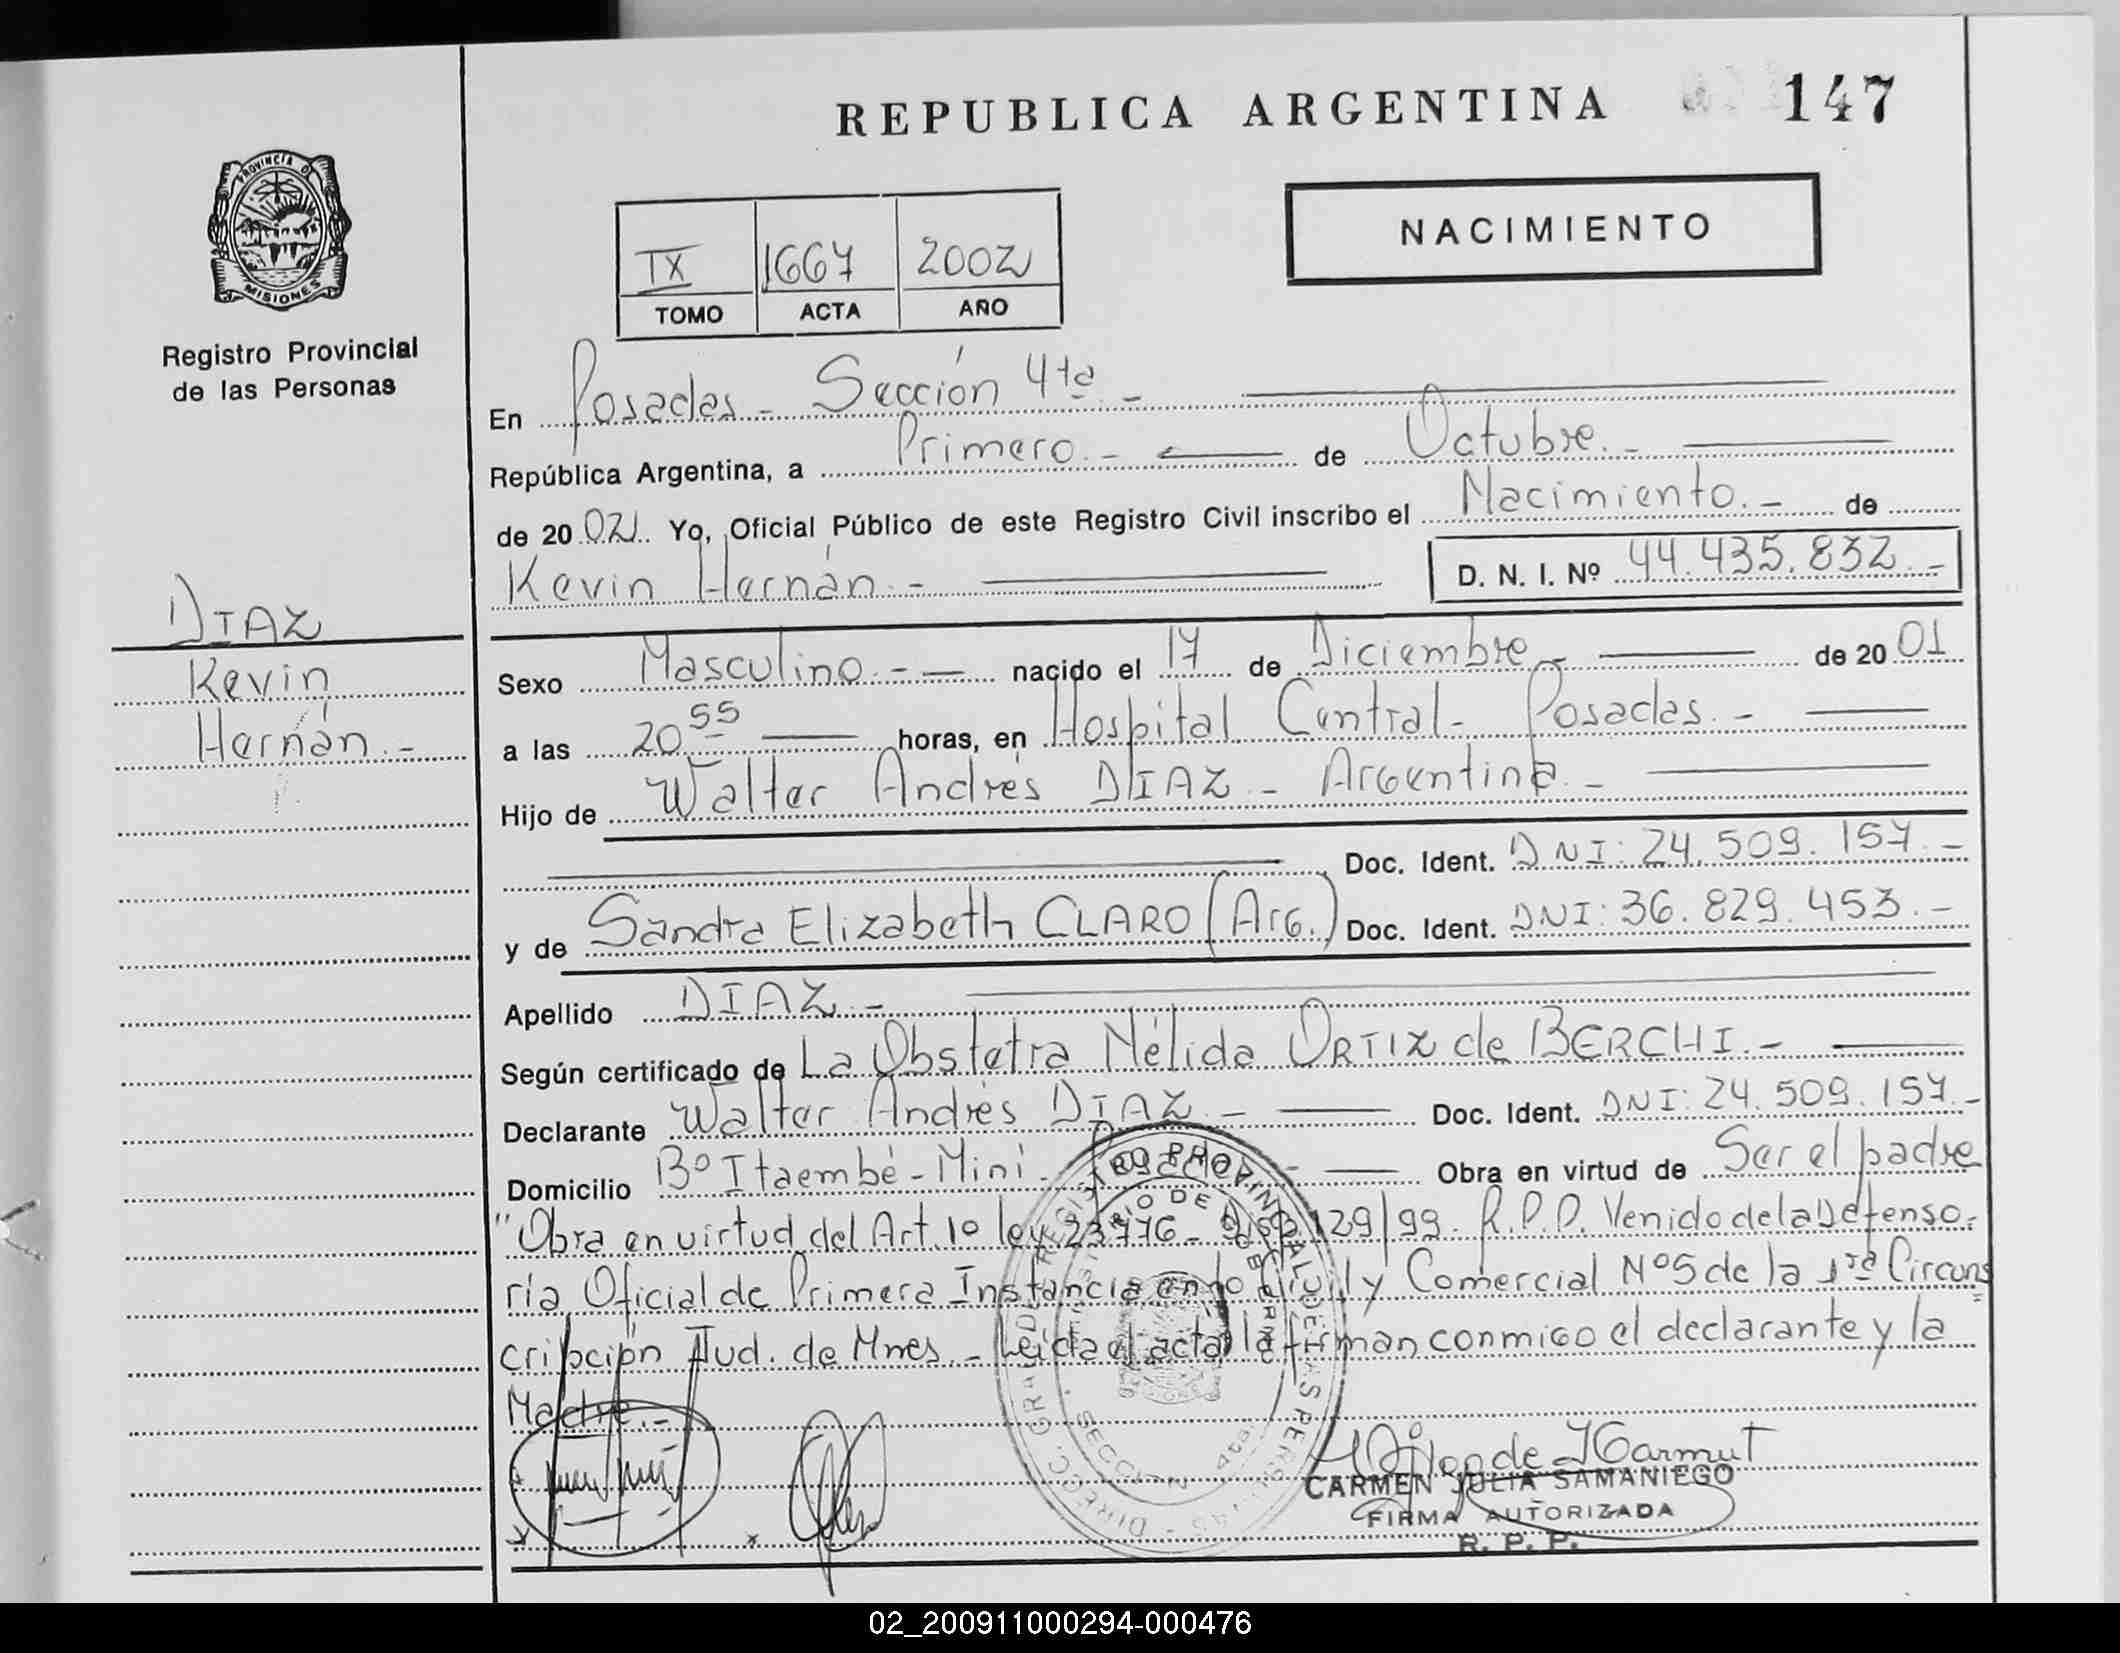 REPUBLICA ARGENTINA
147
PROVINCIA D
MISIONES
Registro Provincial
de las Personas
NACIMIENTO
IX 1667 2002
TOMO ACTA AÑO
En Posadas - Sección 4ta. -
República Argentina, a Primero. - de Octubre. -
de 20 02. Yo, Oficial Público de este Registro Civil inscribo el Nacimiento. - de
Kevin Hernán. - D. N. I. Nº 44.435.832. -
DIAZ
Kevin
Hernán. -
Sexo Masculino. - nacido el 17 de Diciembre - de 20 01
a las 20 55 horas, en Hospital Central - Posadas. -
Hijo de Walter Andrés DIAZ - Argentina. -
Doc. Ident. DNI: 24.509.157. -
y de Sandra Elizabeth CLARO (Arg.) Doc. Ident. DNI: 36.829.453. -
Apellido DIAZ. -
Según certificado de La Obstetra Nélida ORTIZ de BERCHI. -
Declarante Walter Andrés DIAZ. - Doc. Ident. DNI: 24.509.157. -
Domicilio Bº Itaembé - Mini - Obra en virtud de Ser el padre
"Obra en virtud del Art. 1º ley 23776 - Disp. 129/99. R.P.P. Venido de la Defenso-
ría Oficial de Primera Instancia en lo Civil y Comercial Nº 5 de la 1ra Circuns
cripción Jud. de Mnes - Leída el acta la firman conmigo el declarante y la
Madre. -
SECCION 4ta
CARMEN JULIA SAMANIEGO
FIRMA AUTORIZADA
R. P. P.
02_200911000294-000476